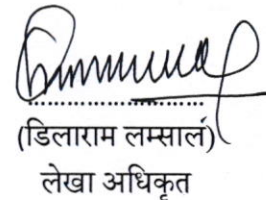 (डिलाराम लम्साल)
लेखा अधिकृत